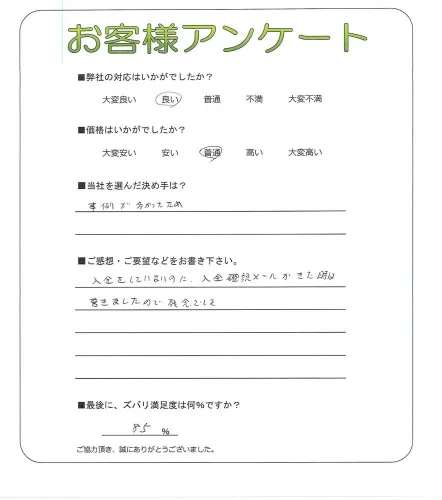 お客様アンケート
■弊社の対応はいかがでしたか？
大変良い 良い 普通 不満 大変不満
■価格はいかがでしたか？
大変安い 安い 普通 高い 大変高い
■当社を選んだ決め手は？
事例が分かったため
■ご感想・ご要望などをお書き下さい。
入金をしていないのに、入金確認メールがきた時は
驚きましたので残念でした
■最後に、ズバリ満足度は何%ですか？
85 %
ご協力頂き、誠にありがとうございました。